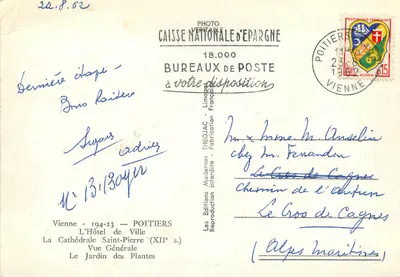 22-8.62
PHOTO
CAISSE NATIONALE d'EPARGNE
18.000
BUREAUX DE POSTE
à votre disposition
POITIERS
VIENNE
REPUBLIQUE FRANÇAISE
ALGER
0,15
Dernière étape -
Bons
Les Editions Modernes "THEOJAC" - Limoges
Reproduction interdite - Fabrication Française
M. & Mme. M. Anselin
chez M.
Le Cros de Cagnes
chemin de
Le Cros de Cagnes
(Alpes Maritimes)
Vienne - 194-23 - POITIERS
L'Hôtel de Ville
La Cathédrale Saint-Pierre (XIIe s.)
Vue Générale
Le Jardin des Plantes